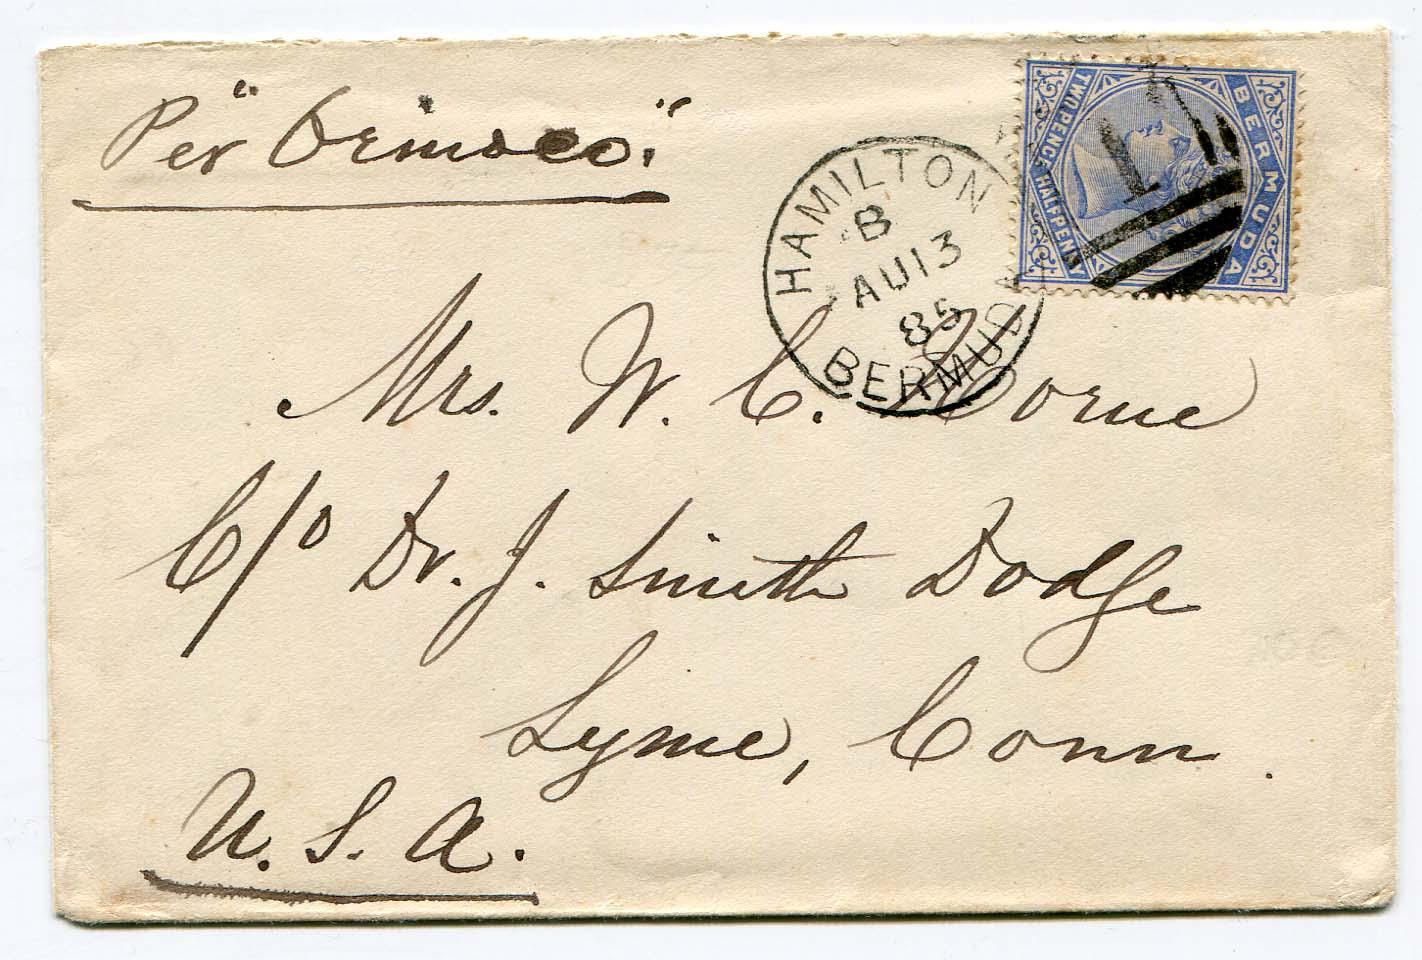 Per "Orinoco."
BERMUDA
TWO PENCE HALFPENNY
1
HAMILTON
B
AU 13
85
BERMUDA
Mrs. W. C.
C/o Dr. J. Smith Dodge
Lyme, Conn.
U. S. A.